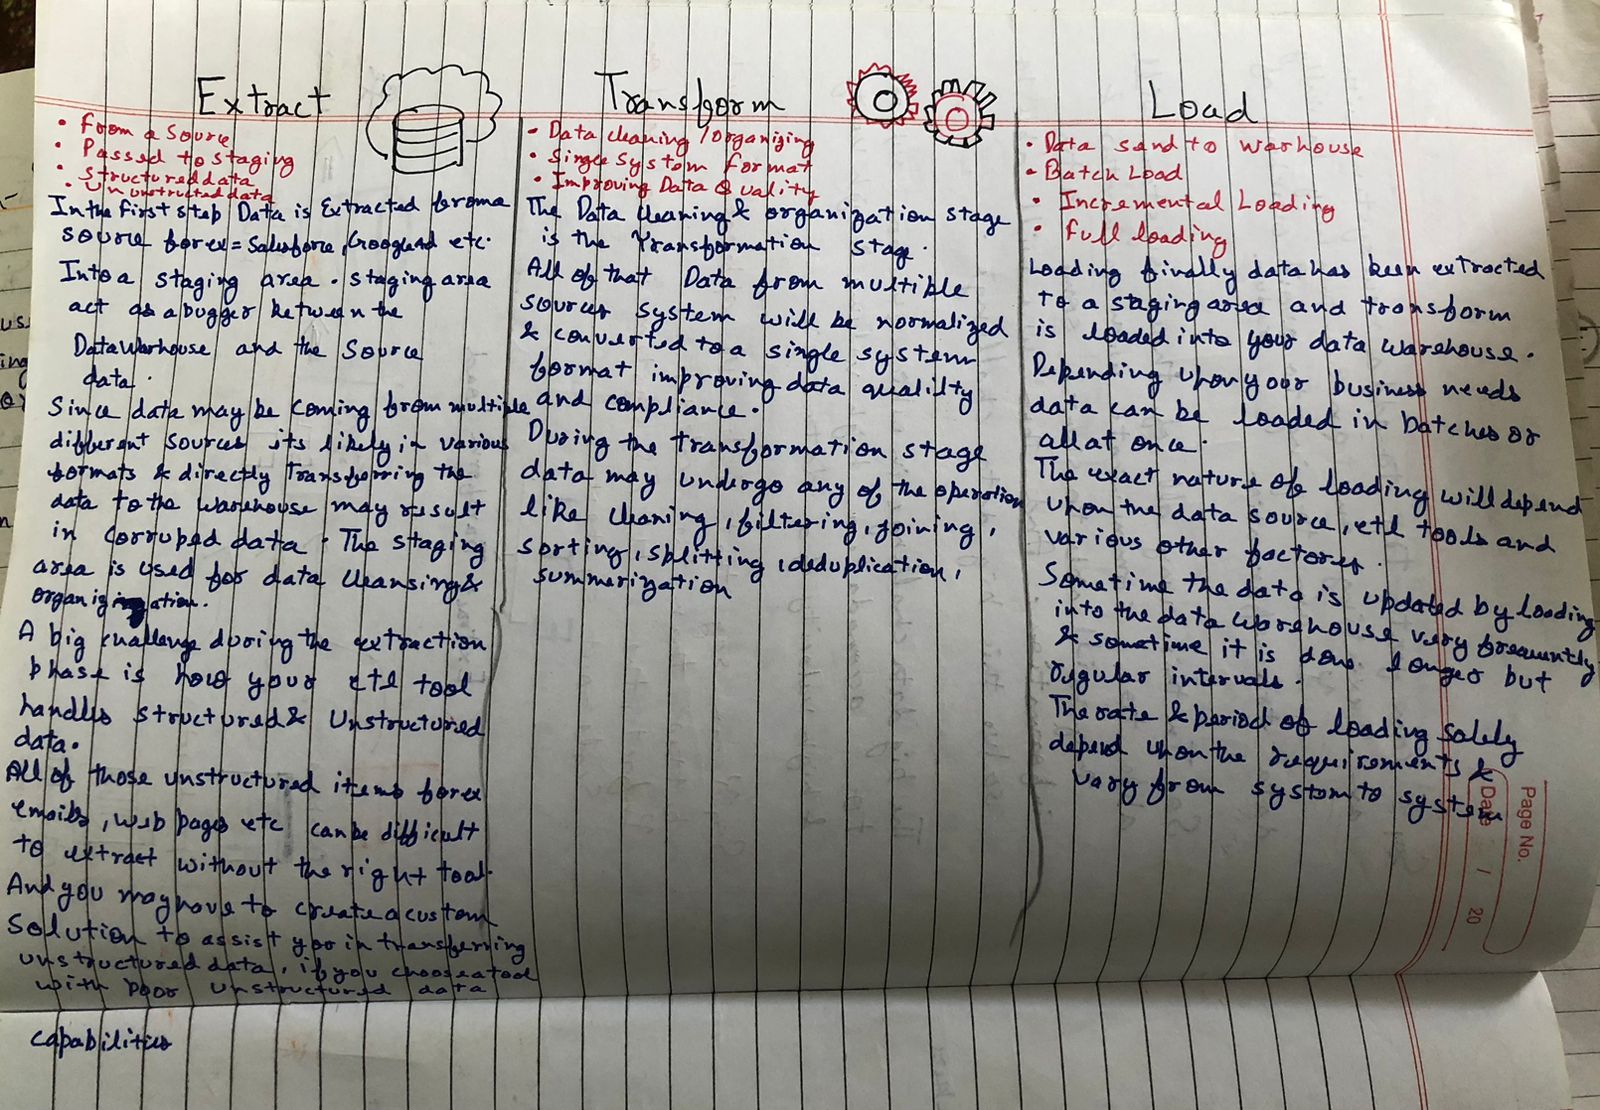 Extract
• From a Source
• Passed to staging
• structured data
• Un unstructured data
In the first step Data is Extracted from a
source for ex = Salesforce, GoogleAd etc.
Into a staging area. staging area
act as a bugger between the
Data Warhouse and the Source
data.
Since data may be coming from multiple
different sources its likely in various
formats & directly Transferring the
data to the warehouse may result
in corruped data. The staging
area is used for data cleansing &
organization.
A big challenge during the extraction
phase is how your etl tool
handles structured & Unstructured
data.
All of those unstructured items for ex
emails, web pages etc can be difficult
to extract without the right tool.
And you may have to create a custom
Solution to assist you in transferring
unstructured data, if you choose a tool
with poor unstructured data
capabilities
Transform
• Data cleaning / organizing
• Single System Format
• Improving Data Quality
The Data cleaning & organization stage
is the Transformation stage.
All of that Data from multiple
sources system will be normalized
& converted to a single system
format improving data quality
and compliance.
During the transformation stage
data may undergo any of the operation
like cleaning, filtering, joining,
sorting, splitting, deduplication,
summerization
Load
• Data send to warhouse
• Batch Load
• Incremental Loading
• Full loading
Loading finally data has been extracted
to a staging area and transform
is loaded into your data warehouse.
Depending upon your business needs
data can be loaded in batches or
all at once.
The exact nature of loading will depend
upon the data source, etl tools and
various other factores.
Sometime the data is updated by loading
into the data warehouse very frequently
& sometime it is done longer but
regular intervals.
The rate & period of loading solely
depend upon the requirements &
vary from system to system
Page No.
Date / 20